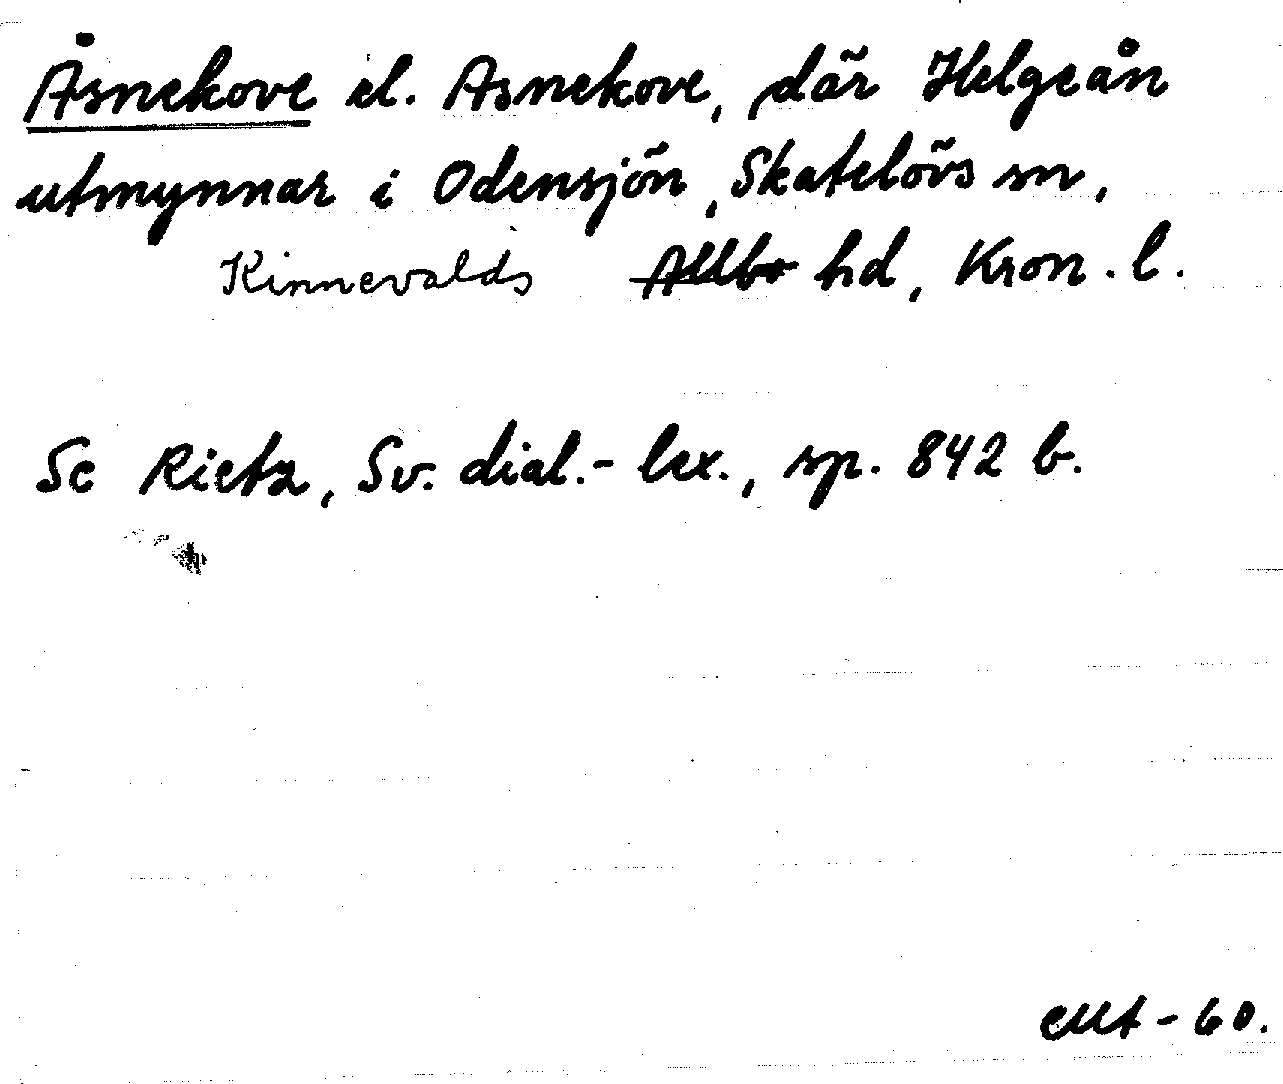 Åsnekove el. Asnekove, där Helgeån
utmynnar i Odensjön, Skatelövs sn,
Kinnevalds Allbo hd, Kron. l.
Se Rietz, Sv. dial.-lex., sp. 842 b.